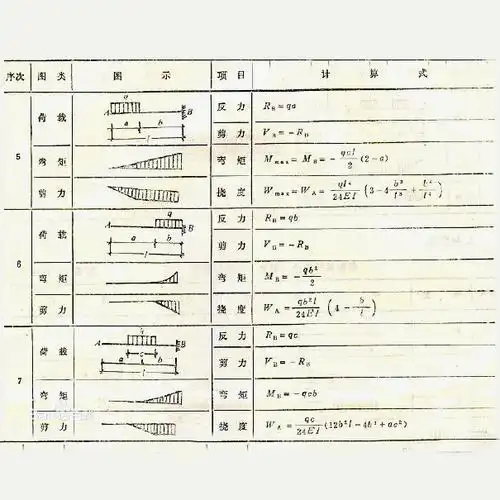 序次 图类 图 示 项目 计 算 式
5
荷 载
q
A B
a b
l
反 力 R_B=qa
剪 力 V_B=-R_B
弯 矩
弯 矩 M_max=M_B=-\frac{qal}{2}(2-a)
剪 力
挠 度 W_max=W_A=\frac{ql^4}{24EI}(3-4\frac{b^3}{l^3}+\frac{b^4}{l^4})
6
荷 载
q
A B
a b
l
反 力 R_B=qb
剪 力 V_B=-R_B
弯 矩
弯 矩 M_B=-\frac{qb^2}{2}
剪 力
挠 度 W_A=\frac{qb^2l}{24EI}(4-\frac{b}{l})
7
荷 载
q
A B
a b
c
l
反 力 R_B=qc
剪 力 V_B=-R_B
弯 矩
弯 矩 M_B=-qcb
剪 力
挠 度 W_A=\frac{qc}{24EI}(12b^2l-4b^3+ac^2)